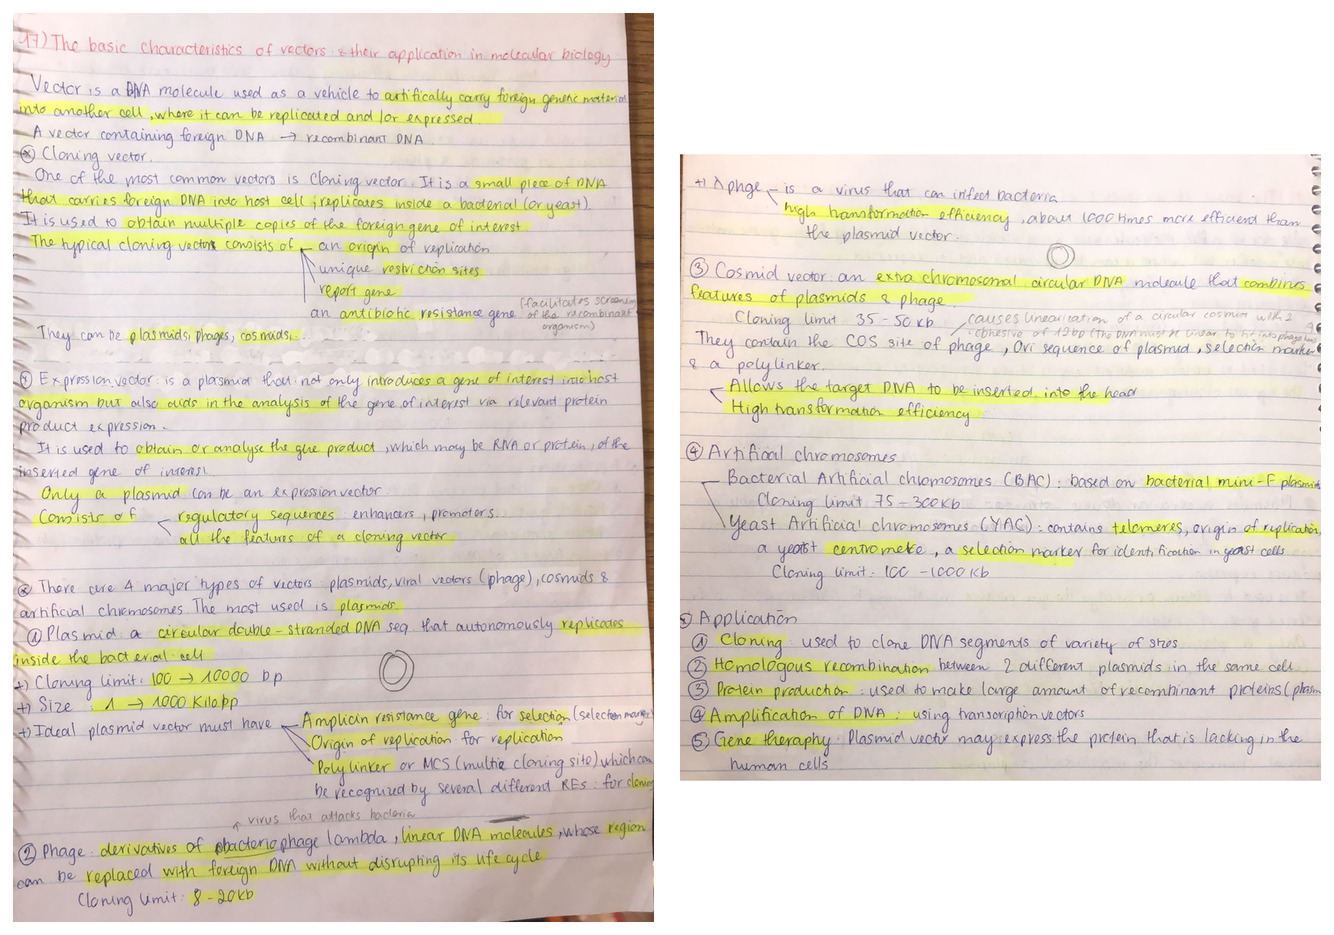 17) The basic characteristics of vectors & their application in molecular biology
Vector is a DNA molecule used as a vehicle to artifically carry foreign genetic material
into another cell, where it can be replicated and/or expressed.
A vector containing foreign DNA → recombinant DNA.
Cloning vector.
One of the most common vectors is Cloning vector. It is a small piece of DNA
that carries foreign DNA into host cell; replicates inside a bacterial (or yeast).
It is used to obtain multiple copies of the foreign gene of interest
The typical cloning vectors consists of an origin of replication
unique restriction sites
report gene
an antibiotic resistance gene
(facilitates screening
of the recombinant
organism)
They can be plasmids, phages, cosmids.
Expression vector: is a plasmid that not only introduces a gene of interest into host
organism but also aids in the analysis of the gene of interest via relevant protein
product expression.
It is used to obtain or analyse the gne product, which may be RNA or protein, of the
inserted gene of interest
Only a plasmid can be an expression vector
Consists of regulatory sequences enhancers, promotors.
all the features of a cloning vector
There are 4 major types of vectors plasmids, viral vectors (phage), cosmids &
artificial chromosomes The most used is plasmids.
① Plasmid a circular double-stranded DNA seq that autonomously replicates
inside the bacterial cell
+) Cloning limit: 100 → 10000 bp
+) Size 1 → 1000 Kilobp
+) Ideal plasmid vector must have Amplician resistance gene: for selection (selection marker)
Origin of replication for replication
Polylinker or MCS (multie cloning site) which can
be recognized by several different REs: for cloning
virus that attacks bacteria
② Phage: derivatives of bacteriophage lambda, linear DNA molecules, whose region
can be replaced with foreign DNA without disrupting its life cycle
Cloning limit: 8-20kb
+) λ phge is a virus that can infect bacteria
high transformation efficiency, about 1000 times more efficient than
the plasmid vector.
③ Cosmid vector: an extra chromosonal circular DNA molecule that combines
features of plasmids & phage.
Cloning limit 35-50 kb
causes linearization of a circular cosmid with 2
cohesive of 12bp (The DNA must be linear to fit into phage head
They contain the COS site of phage, Ori sequence of plasmid, selection marker
& a polylinker.
Allows the target DNA to be inserted into the head
High transformation efficiency
④ Artificial chromosomes
Bacterial Artificial chromosomes (BAC): based on bacterial mini-F plasmid
Cloning limit 75-300Kb
Yeast Artificial chromosomes (YAC): contains telomeres, origin of replication,
a yeast centromeke, a selection marker for identification in yeast cells
Cloning limit: 100-1000Kb
Application
① Cloning used to clone DNA segments of variety of sizes
② Homologous recombination between 2 different plasmids in the same cell
③ Protein production: used to make large amount of recombinant proteins (plasm
④ Amplification of DNA: using transcription vectors
⑤ Gene theraphy: Plasmid vector may express the protein that is lacking in the
human cells